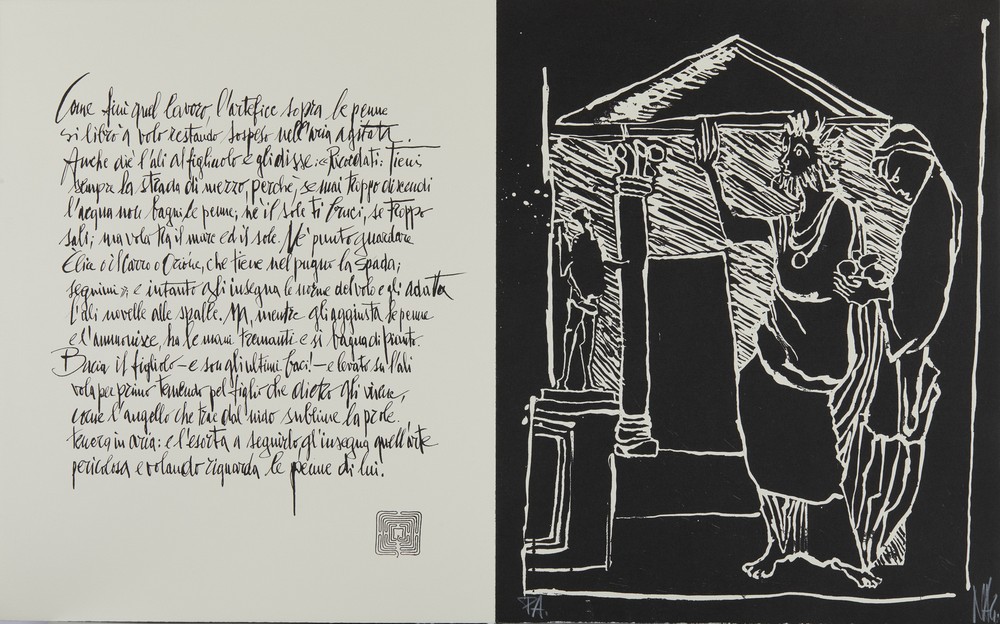 Come finì quel lavoro, l'artefice sopra le penne
si librò a volo restando sospeso nell'aria agitata.
Anche diè l'ali al figliuolo e gli disse: « Ricordati: tieni
sempre la strada di mezzo, perché, se mai troppo discendi
l'acqua non bagni le penne; né il sole ti bruci, se troppo
sali; ma vola tra il mare ed il sole. Né punto guardare
Elice o il Carro o Orione, che tiene nel pugno la spada;
seguimi »; e intanto gli insegna le norme del volo e gli adatta
l'ali novelle alle spalle. Ma, mentre gli aggiusta le penne
e l'ammonisce, ha le mani tremanti e si bagna di pianto.
Bacia il figliolo – e son gli ultimi baci! – e levato su l'ali
vola per primo temendo pel figlio che dietro gli viene,
come l'augello che trae dal nido sublime la prole
tenera in aria: e l'esorta a seguirlo gl'insegna quell'arte
pericolosa e volando riguarda le penne di lui.
P.A.